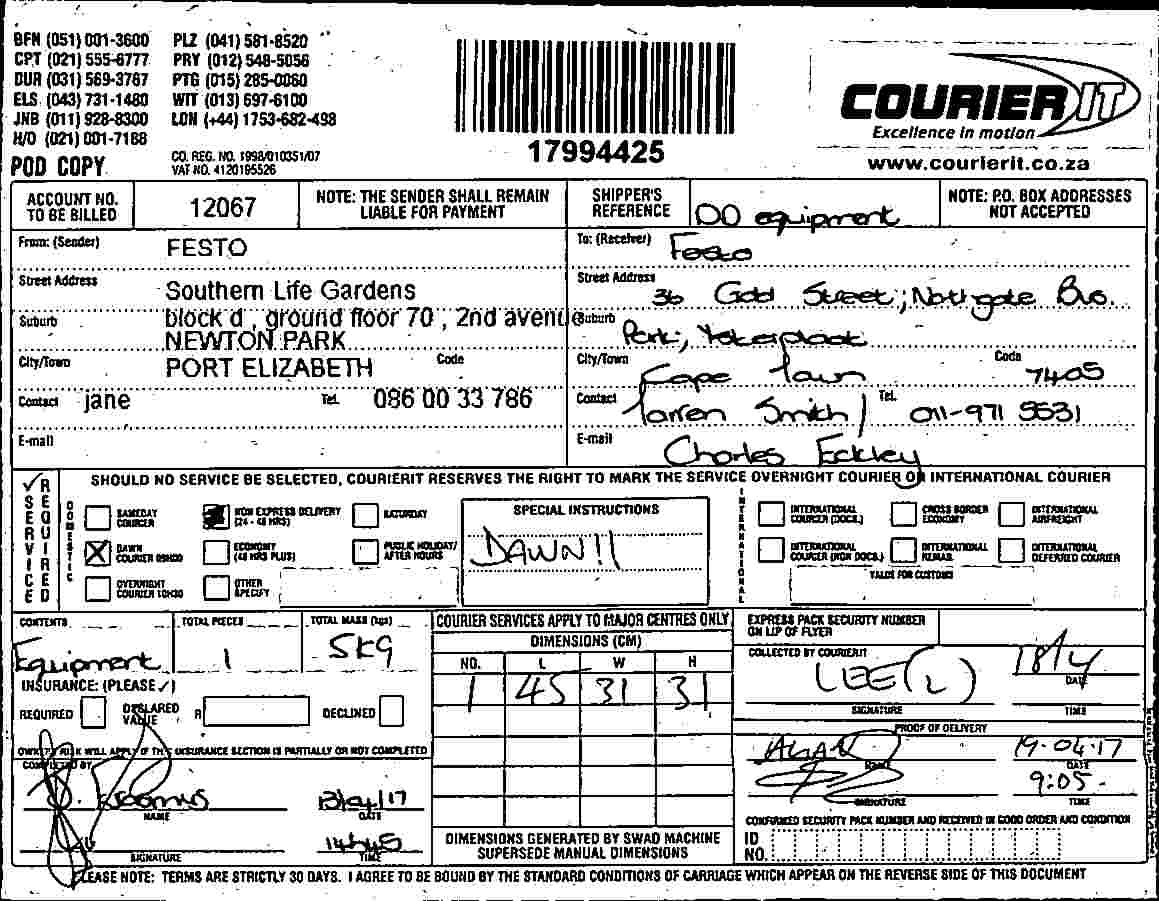 BFN (051) 001-3600 PLZ (041) 581-8520
CPT (021) 555-6777 PRY (012) 548-5056
DUR (031) 569-3767 PTG (015) 285-0060
ELS (043) 731-1480 WIT (013) 697-6100
JNB (011) 928-8300 LDN (+44) 1753-682-498
H/O (021) 001-7188
POD COPY
CO. REG. NO. 1998/010351/07
VAT NO. 4120195526
17994425
COURIER IT
Excellence in motion
www.courierit.co.za
ACCOUNT NO. TO BE BILLED 12067
NOTE: THE SENDER SHALL REMAIN LIABLE FOR PAYMENT
SHIPPER'S REFERENCE DO equipment
NOTE: P.O. BOX ADDRESSES NOT ACCEPTED
From: (Sender) FESTO
Street Address Southern Life Gardens
Suburb block d , ground floor 70 , 2nd avenue
NEWTON PARK
City/Town PORT ELIZABETH Code
Contact jane Tel. 086 00 33 786
E-mail
To: (Receiver) Festo
Street Address 36 Gold Street, Northgate Bus.
Suburb Park,
City/Town Cape Town Code 7405
Contact Smith / Tel. 011-971 5531
E-mail Charles Eckley
SERVICE REQUIRED
SHOULD NO SERVICE BE SELECTED, COURIERIT RESERVES THE RIGHT TO MARK THE SERVICE OVERNIGHT COURIER OR INTERNATIONAL COURIER
DOMESTIC
SAMEDAY COURIER
NON EXPRESS DELIVERY (24 - 48 HRS)
SATURDAY
DAWN COURIER 09H00
ECONOMY (48 HRS PLUS)
PUBLIC HOLIDAY/ AFTER HOURS
OVERNIGHT COURIER 10H30
OTHER SPECIFY
SPECIAL INSTRUCTIONS
DAWN!!
INTERNATIONAL
INTERNATIONAL COURIER (DOCS.)
CROSS BORDER ECONOMY
INTERNATIONAL AIRFREIGHT
INTERNATIONAL COURIER (NON DOCS.)
INTERNATIONAL REMAIL
INTERNATIONAL DEFERRED COURIER
VALUE FOR CUSTOMS
CONTENTS Equipment
TOTAL PIECES 1
TOTAL MASS (kgs) 5kg
INSURANCE: (PLEASE ✓)
REQUIRED DECLARED VALUE R DECLINED
OWNER'S RISK WILL APPLY IF THE INSURANCE SECTION IS PARTIALLY OR NOT COMPLETED
COMPLETED BY
NAME DATE
14h45
SIGNATURE TIME
COURIER SERVICES APPLY TO MAJOR CENTRES ONLY
DIMENSIONS (CM)
NO. L W H
1 45 31 31
DIMENSIONS GENERATED BY SWAD MACHINE SUPERSEDE MANUAL DIMENSIONS
EXPRESS PACK SECURITY NUMBER ON LIP OF FLYER
COLLECTED BY COURIERIT
LEE (L) 18/4
DATE
SIGNATURE TIME
PROOF OF DELIVERY
19-04-17
NAME DATE
9:05
SIGNATURE TIME
CONFIRMED SECURITY PACK NUMBER AND RECEIVED IN GOOD ORDER AND CONDITION
ID NO.
PLEASE NOTE: TERMS ARE STRICTLY 30 DAYS. I AGREE TO BE BOUND BY THE STANDARD CONDITIONS OF CARRIAGE WHICH APPEAR ON THE REVERSE SIDE OF THIS DOCUMENT